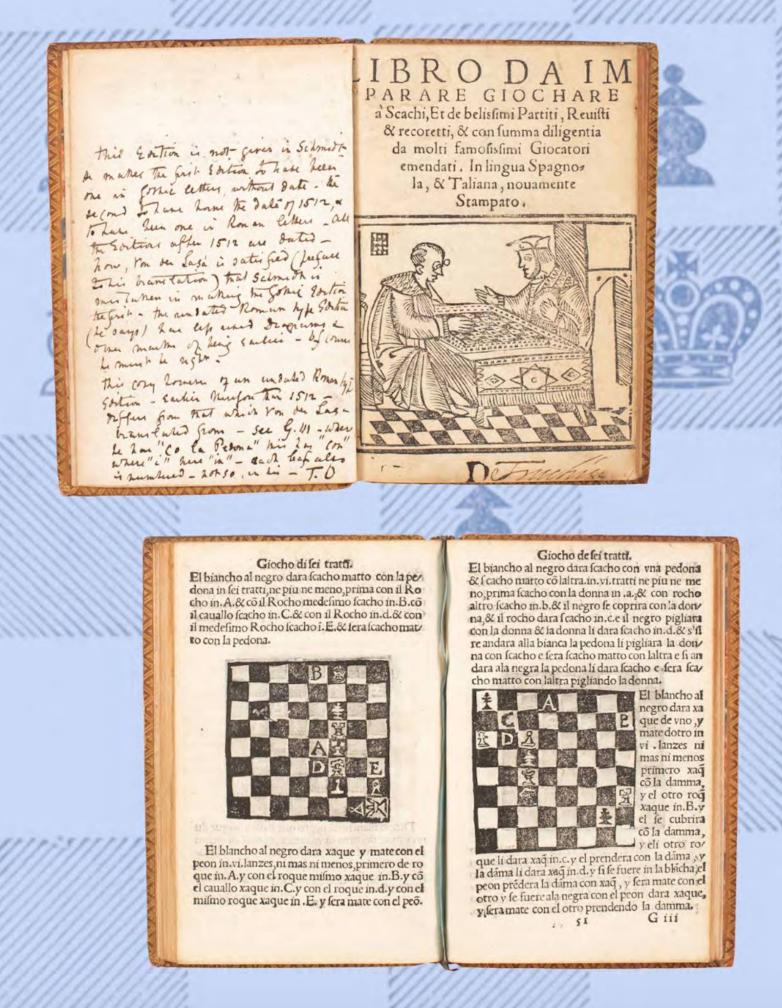 this Edition is not given in Schmidt
he makes the first Edition to have been
one in Gothic letters, without date – the
second to have borne the date of 1512, &
to have been one in Roman letters – All
the Editions after 1512 are dated –
now, Von der Lasa is satisfied (preface
this translation) that Schmidt is
mistaken in making the Gothic Edition
the first – the undated Roman type Edition
(he says) has left Diagrams &
other marks of being earlier – of course
he must be right –
This copy however of an undated Roman type
Edition – earlier therefore than 1512 –
differs from that which Von der Lasa
translated from – see G.III – where
he has "co la Pedona" this has "con"
where "i" here "in" – each leaf also
is numbered – not so, in his – T. D
LIBRO DA IM
PARARE GIOCHARE
à Scachi, Et de belissimi Partiti, Reuisti
& recoretti, & con summa diligentia
da molti famosissimi Giocatori
emendati. In lingua Spagno-
la, & Taliana, nouamente
Stampato.
D
Giocho di sei tratti.
El biancho al negro dara scacho matto con la pe-
dona in sei tratti, ne piu ne meno, prima con il Ro
cho in. A. & cō il Rocho medesimo scacho in. B. cō
il cauallo scacho in. C. & con il Rocho in. d. & con
il medesimo Rocho scacho i. E. & sera scacho mat-
to con la pedona.
B
A
D E
El blancho al negro dara xaque y mate con el
peon in. vi. lanzes, ni mas ni menos, primero de ro
que in. A. y con el roque mismo xaque in. B. y cō
el cauallo xaque in. C. y con el roque in. d. y con el
mismo roque xaque in . E. y sera mate con el peō.
Giocho de sei tratti.
El biancho al negro dara scacho con vna pedona
& scacho marto cō laltra. in. vi. tratti ne piu ne me
no, prima scacho con la donna in .a. & con rocho
altro scacho in. b. & il negro se coprira con la don-
na, & il rocho dara scacho in. c. e il negro pigliara
con la donna & la donna li dara scacho in. d. & s'si
re andara alla bianca la pedona li pigliara la don-
na con scacho e sera scacho matto con laltra e si an
dara ala negra la pedona li dara scacho e sera sca-
cho matto con laltra pigliando la donna.
A
C B
D
El blancho al
negro dara xa
que de vno , y
mate dotro in
vi . lanzes ni
mas ni menos
primero xaq̄
cō la damma,
y el otro roq̄
xaque in. B. y
el se cubrira
cō la damma,
y eli otro ro-
que li dara xaq̄ in. c. y el prendera con la dāma , y
la dāma li dara xaq̄ in. d. y si se fuere in la blācha; el
peon prēdera la dāma con xaq̄ , y sera mate con el
otro y se fuere ala negra con el peon dara xaque,
y sera mate con el otro prendendo la damma.
51 G iii